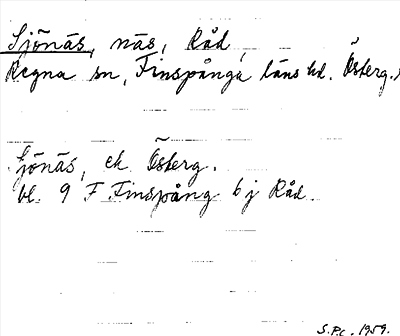 Sjönäs, näs, Råd,
Regna sn, Finspånga läns hd. Österg.
Sjönäs, ek Österg.
bl. 9 F Finspång 6 j Råd.
S.P.C. 1959.